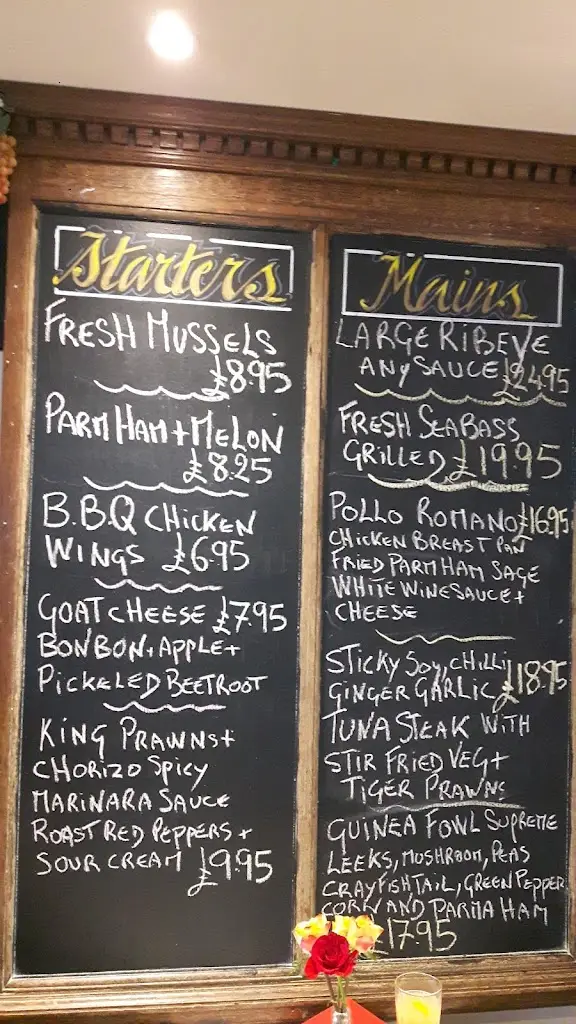 Starters
FRESH MUSSELS
£8.95
PARM HAM + MELON
£8.25
B.B.Q CHICKEN
WINGS £6.95
GOAT CHEESE £7.95
BONBON, APPLE +
PICKELED BEETROOT
KING PRAWNS +
CHORIZO SPICY
MARINARA SAUCE
ROAST RED PEPPERS +
SOUR CREAM £9.95
Mains
LARGE RIBEYE
ANY SAUCE £24.95
FRESH SEABASS
GRILLED £19.95
POLLO ROMANO £16.95
CHICKEN BREAST PAN
FRIED PARM HAM SAGE
WHITE WINE SAUCE +
CHEESE
STICKY SOY, CHILLI
GINGER GARLIC £18.95
TUNA STEAK WITH
STIR FRIED VEG +
TIGER PRAWNS
GUINEA FOWL SUPREME
LEEKS, MUSHROOM, PEAS
CRAYFISH TAIL, GREEN PEPPER
CORN AND PARMA HAM
£17.95